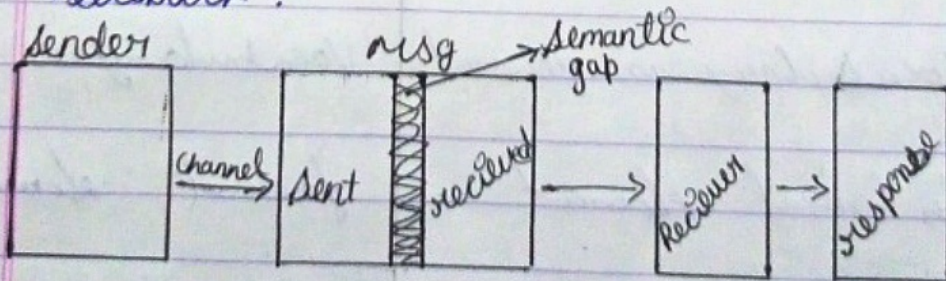 Sender msg semantic
gap
channel sent recieved Reciever response